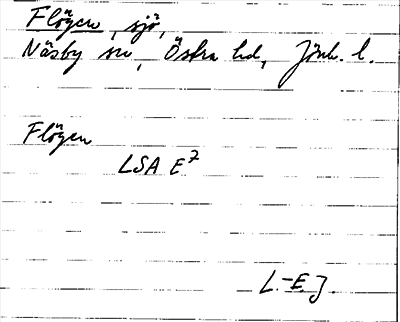 Flögen, sjö,
Näsby sn, Östra hd, Jönk. l.
Flögen
LSA E7
L.-E.J